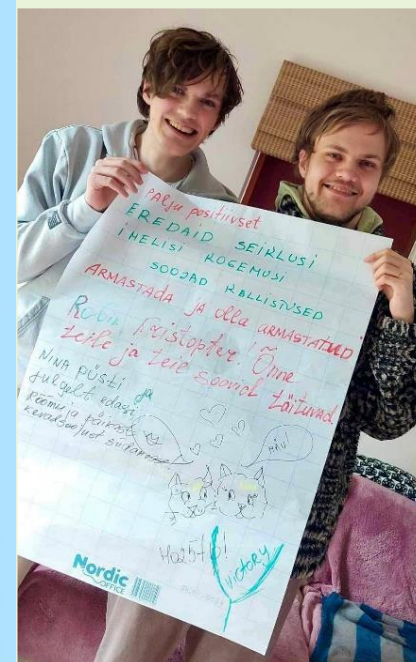 PALJU positiivset
EREDAID SEIKLUSI
IHELISI KOGEMUSI
SOOJAD KALLISTUSED
ARMASTADA JA olla ARMASTATUD
Robin Kristopfer! Õnne
teile ja teie soovid täituvad!
NINA püsti ja
julgelt edasi
Rõõmu ja päikest
MÄU!
VICTORY
Nordic
OFFICE